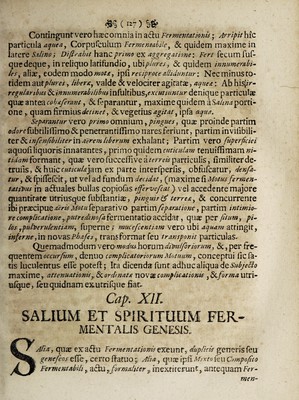 (127)
Contingunt vero hæc omnia in actu Fermentationis; Arripit hic
particula aquea, Corpusculum Fermentabile, & quidem maxime in
latere Salino; Distrabit hanc primo ex aggregatione; Fert secum sus-
que deque, in reliquo latifundio, ubi plores, & quidem innumerabi-
les, aliæ, eodem modo motæ, ipsi reciproce aliduntur: Nec minus to-
tidem aut plures, libere, valde & velociter agitatæ, aqueæ: Ab his ir-
regularibus & innumerabilibus insultibus, excutiuntur denique particulæ
quæ antea cohæserant, & separantur, maxime quidem à Salina porti-
one, quam firmius detinet, & vegetius agitat, ipsa aqua.
Separantur vero primo omnium, pingues, quæ proinde partim
odore subtilissimo & penetrantissimo nares feriunt, partim invisibili-
ter & insensibiliter in aërem liberum exhalant: Partim vero superficiei
aquosi liquores innatantes, primo quidem reticulum tenuissimum ni-
tidam formant, quæ vero successive à terreis particulis, similiter de-
truüs, & huic reticulo jam ex parte interspersis, obfuscatur, densa-
tur, & spissescit, ut vel ad fundum decidat, (maxime si Motus fermen-
tationis in actuales bullas copiosas effervescat) vel accedente majore
quantitate utriusque substantiæ, pinguis & terreæ, & concurrente
ibi præcipue aëris libera separativo partim separatione, partim intimio-
re complicatione, putredinosa fermentatio accidat, quæ per situm, pi-
los, pulverulentiam, superne: mucescentiam vero ubi aquam attingit,
inferne, in novas Phases, transformat seu transponit particulas.
Quemadmodum vero modus horum divisforiorum, &, per fre-
quentem occursum, denuo complicatoriorum Motuum, conceptui sic sa-
tis luculentus esse potest; Ita dicenda sunt adhuc aliqua de Subjecto
maxime, attenuationis, & ordinatæ novæ complicationis, & forma utri-
usque, seu quidnam ex utrisque fiat.
Cap. XII.
SALIUM ET SPIRITUUM FER-
MENTALIS GENESIS.
Salia, quæ ex actu Fermentationis exeunt, duplicis generis seu
geneseos esse, certo statuo; Alia, quæ ipsi Mixto seu Composito
Fermentabili, actu, formaliter, inextiterunt, antequam Fer-
men-